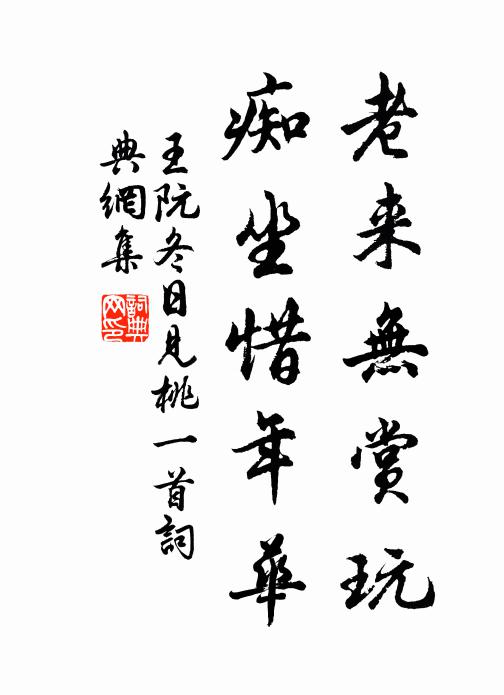 老来無賞玩
痴坐惜年華
王阮冬日見桃一首詞
典網集
詞典网印